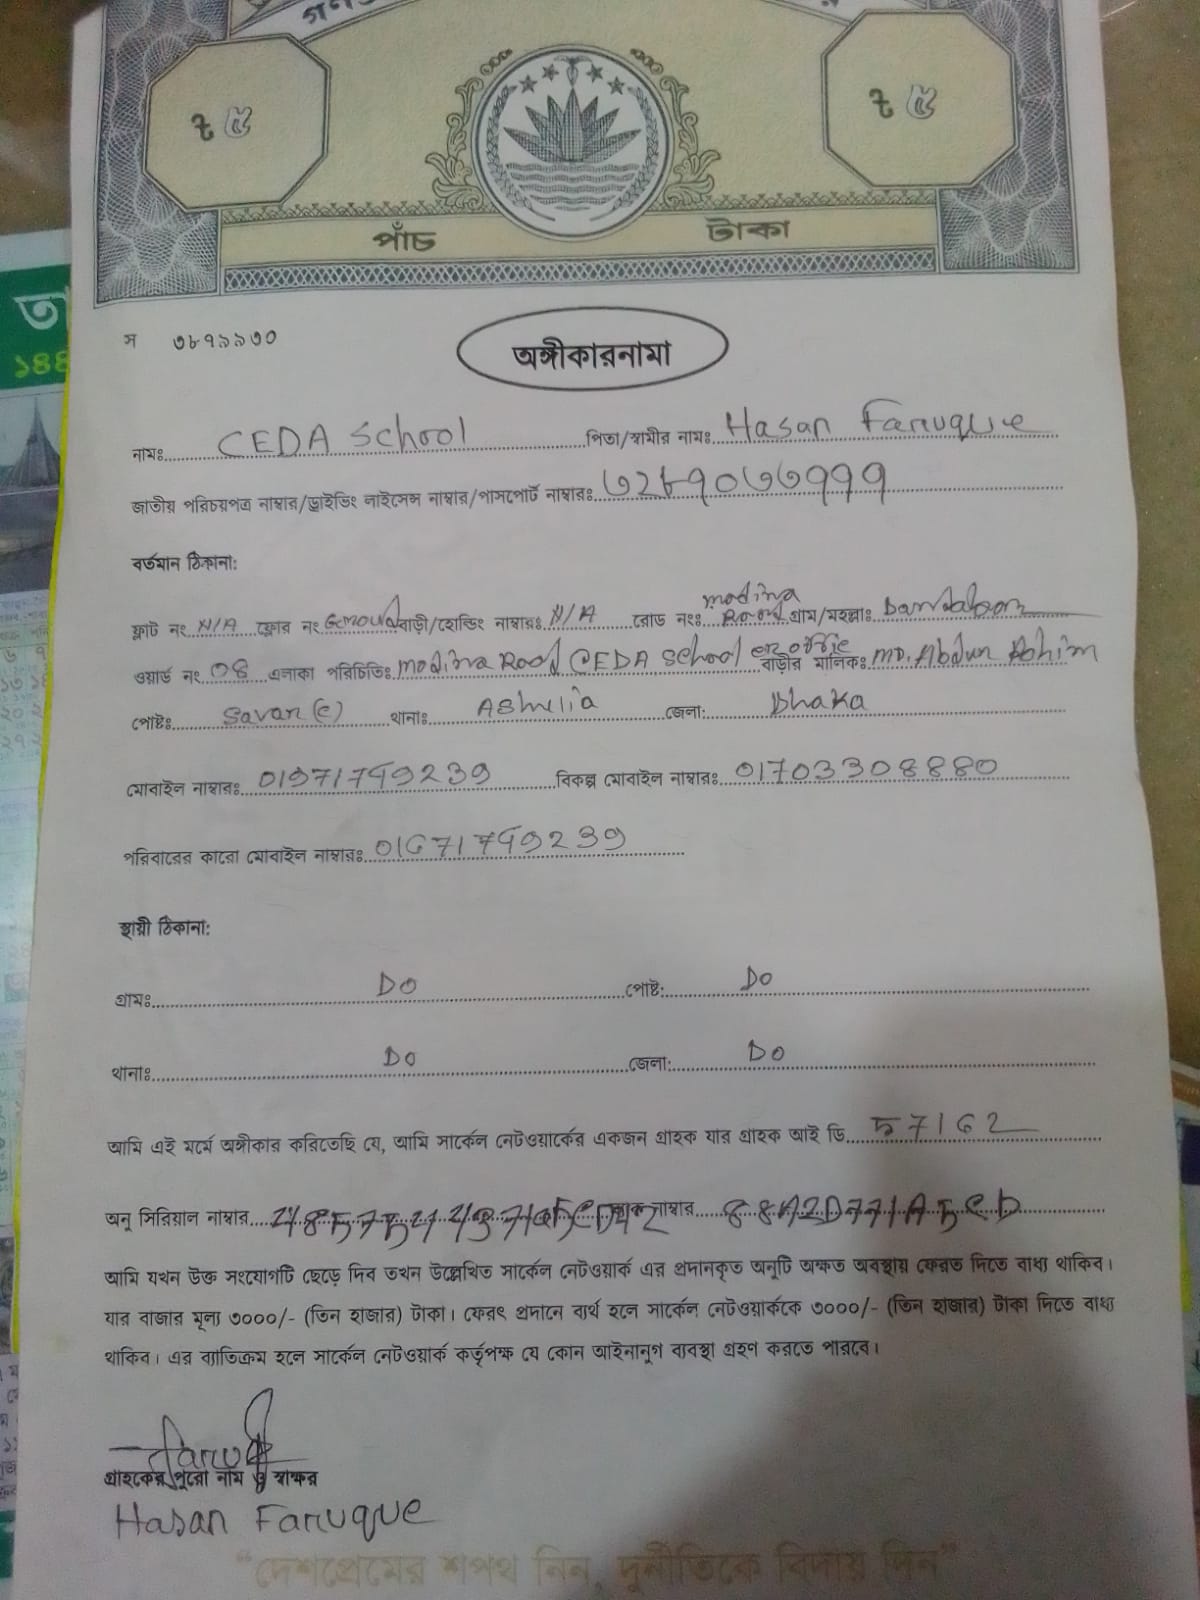 ৳ ৫
৳ ৫
পাঁচ টাকা
স ৩৮৭১৯৩০
অঙ্গীকারনামা
নামঃ CEDA School পিতা/স্বামীর নামঃ Hasan Faruque
জাতীয় পরিচয়পত্র নাম্বার/ড্রাইভিং লাইসেন্স নাম্বার/পাসপোর্ট নাম্বারঃ ৩২৮৭০৩৩৭৭৭
বর্তমান ঠিকানা:
ফ্লাট নং N/A ফ্লোর নং বাড়ী/হোল্ডিং নাম্বারঃ N/A রোড নংঃ modina Road গ্রাম/মহল্লাঃ
ওয়ার্ড নং 08 এলাকা পরিচিতিঃ Modina Road CEDA School বাড়ীর মালিকঃ MD. Abdur Rohim
পোষ্টঃ Savar (c) থানাঃ AShulia জেলা: Dhaka
মোবাইল নাম্বারঃ 01971799239 বিকল্প মোবাইল নাম্বারঃ 01703308880
পরিবারের কারো মোবাইল নাম্বারঃ 01671799239
স্থায়ী ঠিকানা:
গ্রামঃ DO পোষ্ট: DO
থানাঃ DO জেলা: DO
আমি এই মর্মে অঙ্গীকার করিতেছি যে, আমি সার্কেল নেটওয়ার্কের একজন গ্রাহক যার গ্রাহক আই ডি 57162
অনু সিরিয়াল নাম্বার নাম্বার 88A2D771A5CD
আমি যখন উক্ত সংযোগটি ছেড়ে দিব তখন উল্লেখিত সার্কেল নেটওয়ার্ক এর প্রদানকৃত অনুটি অক্ষত অবস্থায় ফেরত দিতে বাধ্য থাকিব।
যার বাজার মূল্য ৩০০০/- (তিন হাজার) টাকা। ফেরৎ প্রদানে ব্যর্থ হলে সার্কেল নেটওয়ার্ককে ৩০০০/- (তিন হাজার) টাকা দিতে বাধ্য
থাকিব। এর ব্যাতিক্রম হলে সার্কেল নেটওয়ার্ক কর্তৃপক্ষ যে কোন আইনানুগ ব্যবস্থা গ্রহণ করতে পারবে।
গ্রাহকের পুরো নাম ও স্বাক্ষর
Hasan Faruque
"দেশপ্রেমের শপথ নিন, দুর্নীতিকে বিদায় দিন"